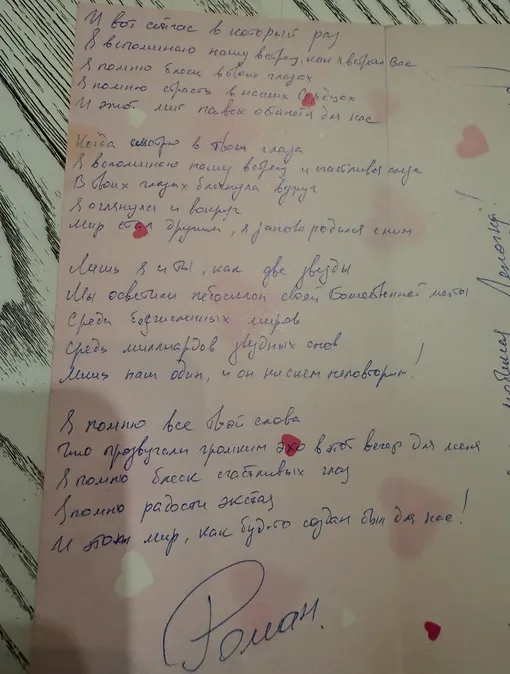 И вот сейчас в который раз
Я вспоминаю нашу встречу, как я встретил Вас
Я помню блеск в твоих глазах
Я помню страсть в наших сердцах
И этот миг навек остался для нас
Когда смотрю в твои глаза
Я вспоминаю нашу встречу и счастливые глаза
В твоих глазах блеснула вдруг
Я оглянулся и вокруг
Мир стал другим, я заново родился с ним
Лишь я и ты, как две звезды
Мы осветили небосклон своей Божественной мечты
Среди бесчисленных миров
Среди миллиардов звездных снов
Лишь наш один, и он ни с кем неповторим!
Я помню все твои слова
Что прозвучали громким эхо в тот вечер для меня
Я помню блеск счастливых глаз
Я помню радости экстаз
И этот мир, как будто создан был для нас!
Роман.
Леночка!